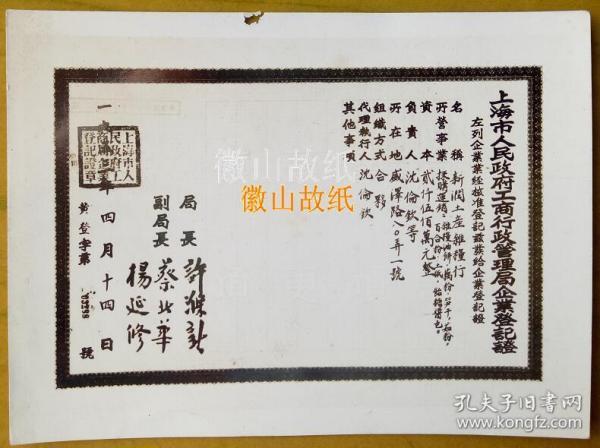 上海市人民政府工商行政管理局企業登記證
左列企業業經核准登記茲發給企業登記證
名稱 新閏土產雜糧行
所營事業
資本 貳仟伍佰萬元整
負責人 沈倫欽等
所在地 威海路八〇弄一號
組織方式 合夥
代理執行人 沈倫欽
其他事項
局長 許滌新
副局長 蔡北華
楊延修
一九五 年四月十四日
黄登字第 號
上海市人
民政府工
商局企業
登記證章
徽山故纸
徽山故纸
孔夫子旧书网
book.kongfz.com